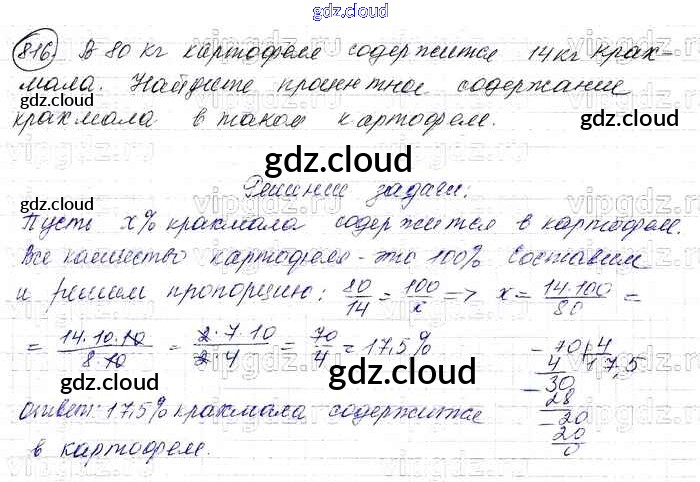 gdz.cloud
816). В 80 кг картофеля содержится 14 кг крах-
мала. Найдите процентное содержание
gdz.cloud
крахмала в таком картофеле.
gdz.cloud
gdz.cloud
Решение задачи:
Пусть x% крахмала содержится в картофеле.
Все количество картофеля - это 100% Составим
и решим пропорцию: 80/14 = 100/x => x = 14·100/80 =
= 14·10·10/8·10 = 2·7·10/2·4 = 70/4 = 17,5%
70 4
- 4 17,5
- 30
28
- 20
20
0
gdz.cloud
gdz.cloud
ответ: 17,5% крахмала содержится
в картофеле.
gdz.cloud
vipgdz.ru